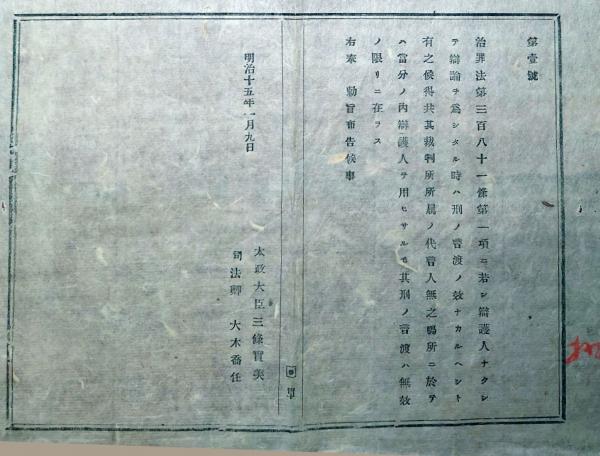 第壹號
治罪法第三百八十一條第一項ニ若シ辯護人ナクシ
テ辯論ヲ爲シタル時ハ刑ノ言渡ノ效ナカルヘシト
有之候得共其裁判所所屬ノ代言人無之場所ニ於テ
ハ當分ノ内辯護人ヲ用ヒサルモ其刑ノ言渡ハ無效
ノ限リニ在ラス
右奉 勅旨布告候事
明治十五年一月九日
太政大臣三條實美
司法卿 大木喬任